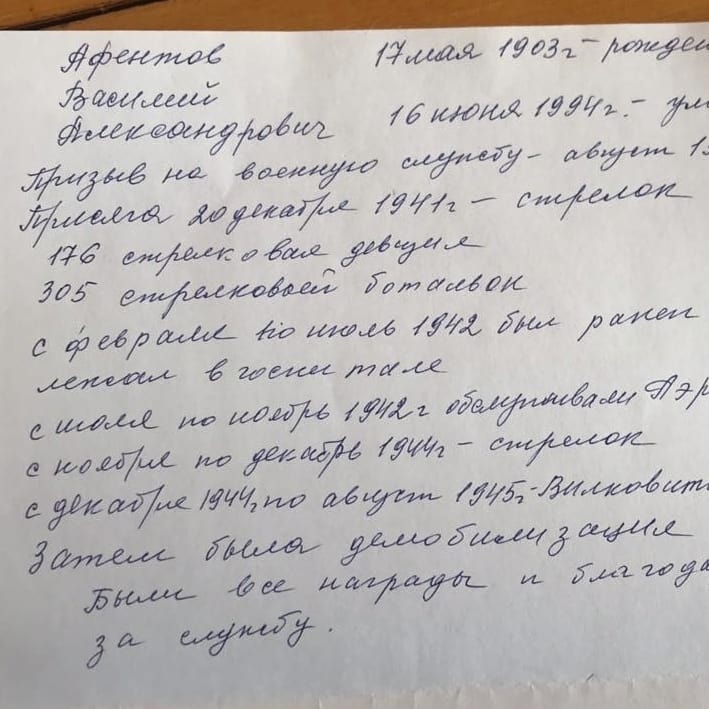 Афентов 17 мая 1903г – рожден
Василий
Александрович 16 июня 1994г. – ум
Призыв на военную службу – август 1
Присяга 20 декабря 1941г – стрелок
176 стрелковая девизия
305 стрелковый ботальон
с февраля по июль 1942 был ранен
лежал в госпитале
с июля по ноябрь 1942г обслуживали Аэр
с ноября по декабрь 1944г – стрелок
с декабря 1944г по август 1945г – Вилковит
Затем была демобилизация
Были все награды и благода
за службу.